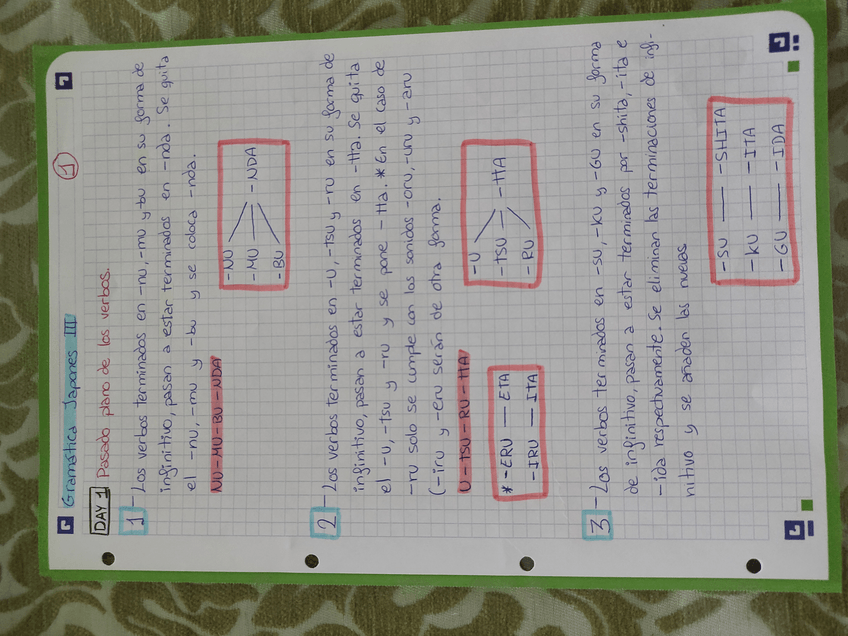 Gramática Japonés III
1
DAY 1 Pasado plano de los verbos.
1 - Los verbos terminados en -nu, -mu y -bu en su forma de
infinitivo, pasan a estar terminados en -nda. Se quita
el -nu, -mu y -bu y se coloca -nda.
NU-MU-BU-NDA
-NU
-MU -NDA
-BU
2 - Los verbos terminados en -u, -tsu y -ru en su forma de
infinitivo, pasan a estar terminados en -tta. Se quita
el -u, -tsu y -ru y se pone -tta. * En el caso de
-ru solo se cumple con los sonidos -oru, -uru y -aru
(-iru y -eru serán de otra forma.
U-TSU-RU-ttA
* -ERU — ETA
-IRU — ITA
-U
-TSU -ttA
-RU
3 - Los verbos terminados en -su, -ku y -GU en su forma
de infinitivo, pasan a estar terminados por -shita, -ita e
-ida respectivamente. Se eliminan las terminaciones de infi-
nitivo y se añaden las nuevas
-SU — -SHITA
-KU — -ITA
-GU — -IDA